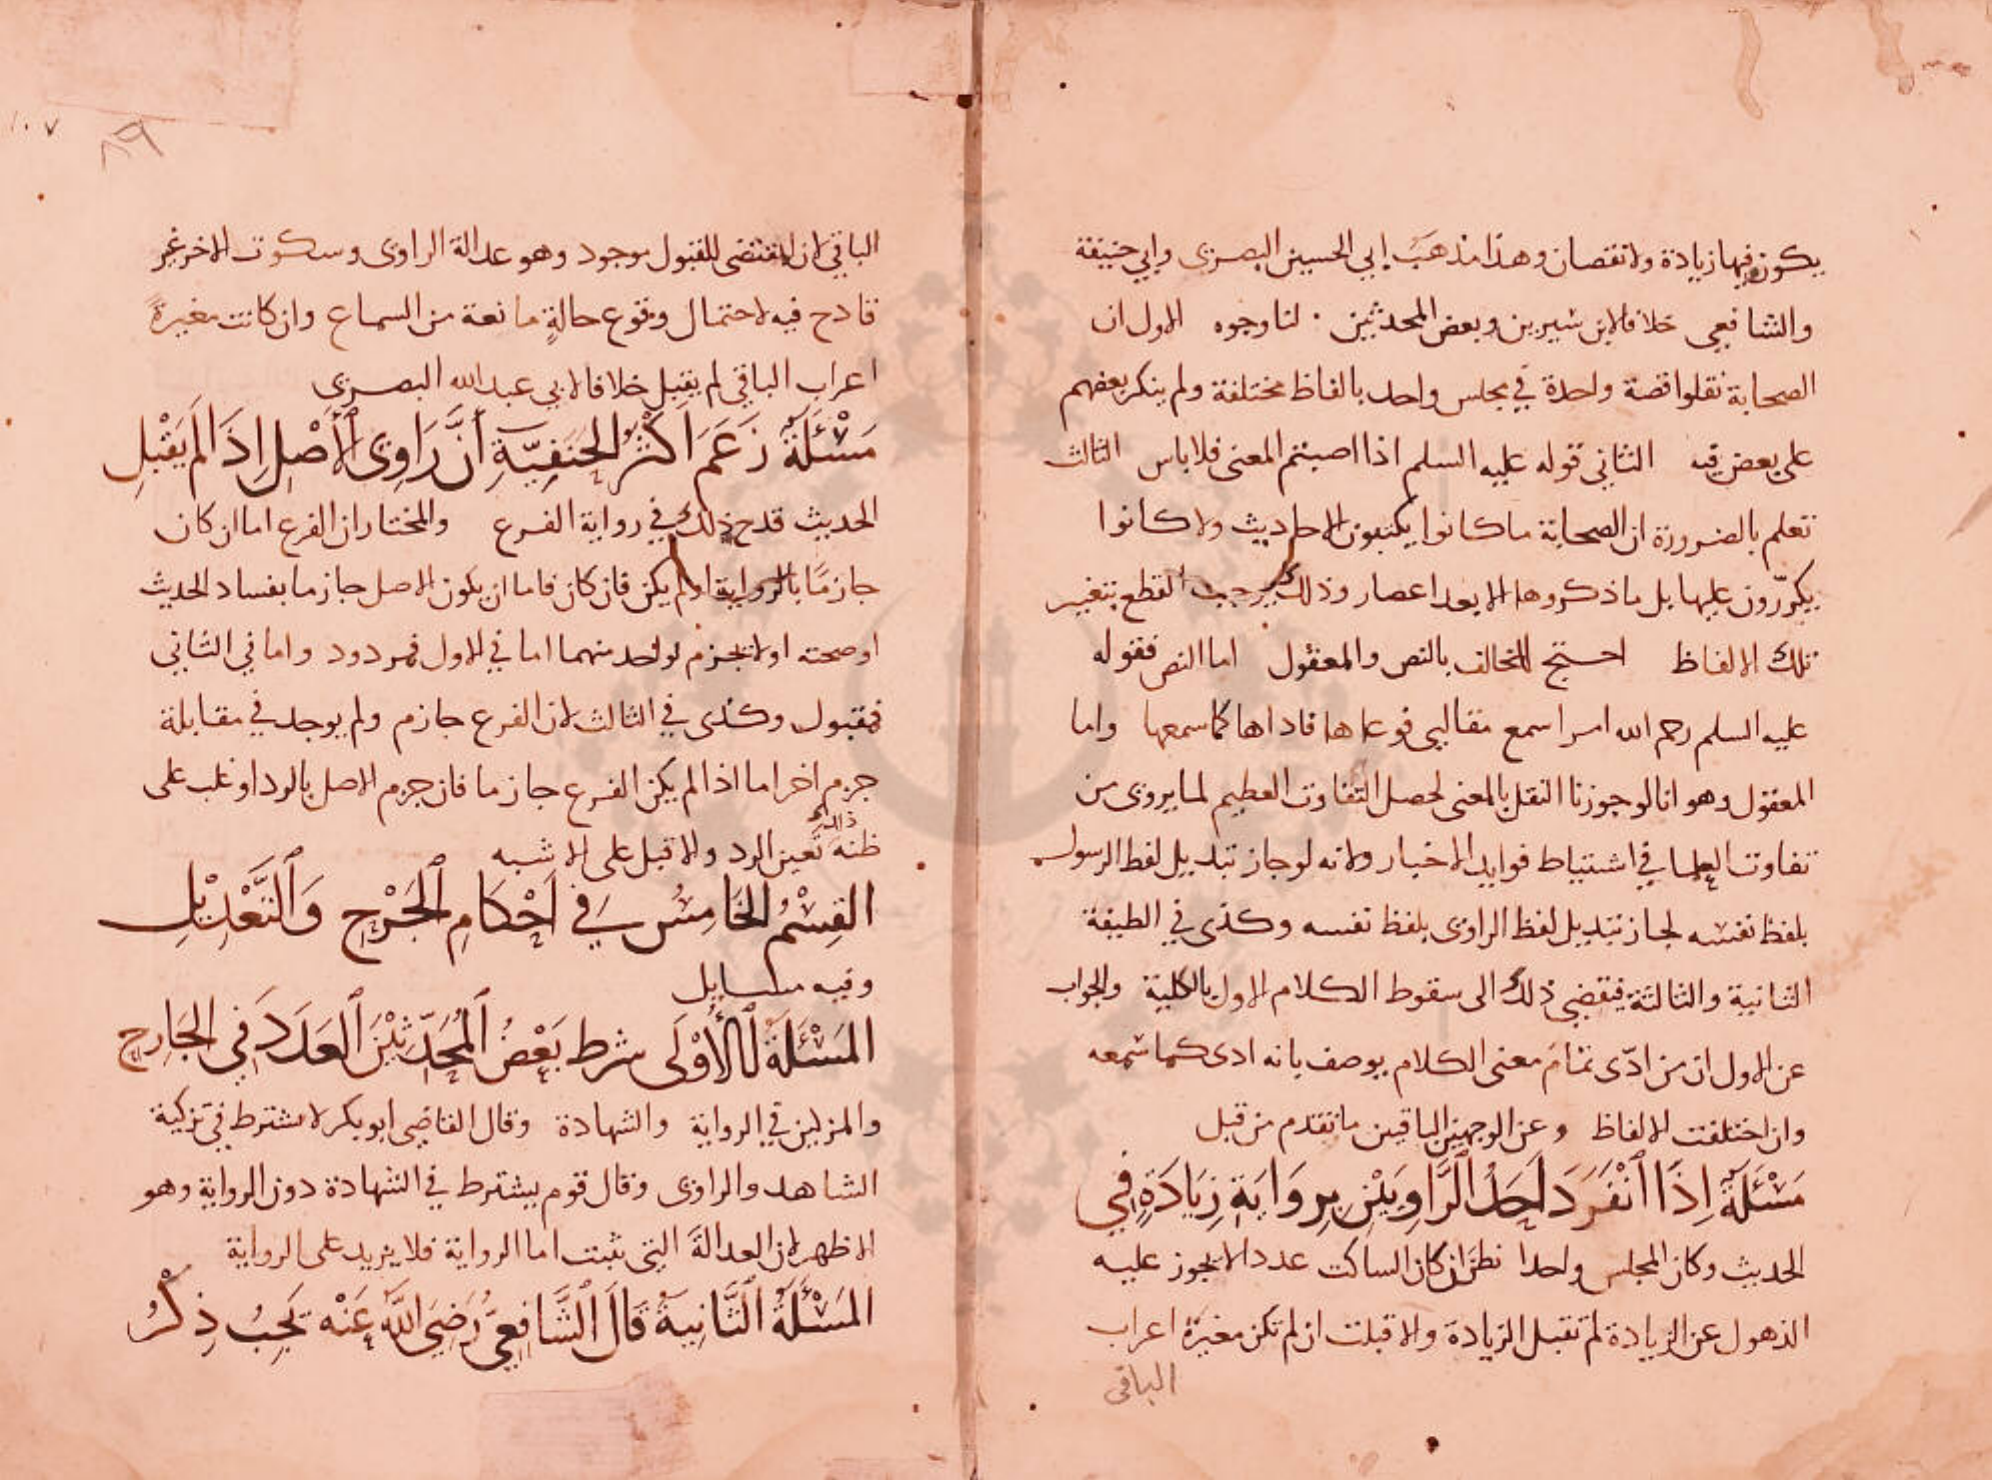 يكون فيها زيادة ولا نقصان وهذا مذهب ابي الحسين البصرى وابي حنيفة
والشافعي خلافا لابن شيرين وبعض المحدثين . لنا وجوه الاول ان
الصحابة نقلوا قصة واحدة في مجلس واحد بالفاظ مختلفة ولم ينكر بعضهم
على بعض فيه الثاني قوله عليه السلم اذا اصبتم المعنى فلا باس الثالث
نعلم بالضرورة ان الصحابة ما كانوا يكتبون الاحاديث ولا كانوا
يكررّون عليها بل ما ذكروها الا بعد اعصار وذلك يوجب القطع بتغيير
تلك الالفاظ احتج المخالف بالنص والمعقول اما النص فقوله
عليه السلم رحم الله امرا سمع مقالتي فوعاها فاداها كما سمعها واما
المعقول وهو انا لو جوزنا النقل بالمعنى لحصل التفاوت العظيم لما يروى من
تفاوت العلما في استنباط فوايد الاخبار ولانه لو جاز تبديل لفظ الرسول
بلفظ نفسه لجاز تبديل لفظ الراوى بلفظ نفسه وكذى في الطبقة
الثانية والثالثة فيقضي ذلك الى سقوط الكلام الاول بالكلية والجواب
عن الاول ان من ادّى تمام معنى الكلام يوصف بانه ادى كما سمعه
وان اختلفت الالفاظ وعن الوجهين الباقيين ما تقدم من قبل
مَسْئَلَةٌ اِذَا اَنْفَرَدَ اَحَدُ الرَّاوِيَيْنِ بِرِوَايَةِ زِيَادَةٍ فِي
الحديث وكان المجلس واحدا نظر ان كان الساكت عددا لا يجوز عليه
الذهول عن الزيادة لم تقبل الزيادة والا قبلت ان لم تكن مغيرة اعراب
الباقى
٨٩
١٠٧
الباقي لان المقتضى للقبول موجود وهو عدالة الراوى وسكوت الاخر غير
قادح فيه لاحتمال وقوع حالةٍ مانعة من السماع وان كانت مغيرةً
اعراب الباقي لم يقبل خلافا لابي عبد الله البصرى
مَسْئَلَةٌ زَعَمَ اَكْثَرُ الحَنَفِيَّةِ أَنَّ رَاوِى الْأَصْلِ اِذَا لَمْ يَقْبَلِ
الحديث قدح ذلك في رواية الفرع والمختار ان الفرع اما ان كان
جازمًا بالرواية او لم يكن فان كان فاما ان يكون الاصل جازما بفساد الحديث
او صحته او لا يجزم لواحد منهما اما في الاول فمردود واما في الثاني
فمقبول وكذى في الثالث لان الفرع جازم ولم يوجد في مقابلة
جزم اخر اما اذا لم يكن الفرع جازما فان جزم الاصل بالرد او غلب على
ظنه ذلك تعين الرد والا قبل على الاشبه
القِسْمُ الخَامِسُ فِي اَحْكَامِ الْجَرْحِ وَالتَّعْدِيْلِ
وفيه مسايل
المَسْئَلَةُ الْأُوْلَى شرط بَعْضُ الْمُحَدِّثِيْنَ الْعَدَدَ فِي الجَارِحِ
والمزكين في الرواية والشهادة وقال القاضي ابو بكر لا يشترط في تزكية
الشاهد والراوى وقال قوم يشترط في الشهادة دون الرواية وهو
الاظهر لان العدالة التي تثبت اما الرواية فلا يزيد على الرواية
المَسْئَلَةُ الثَّانِيَةُ قَالَ الشَّافِعِيُّ رَضِيَ اللَّهُ عَنْه يَجِبُ ذِكْرُ